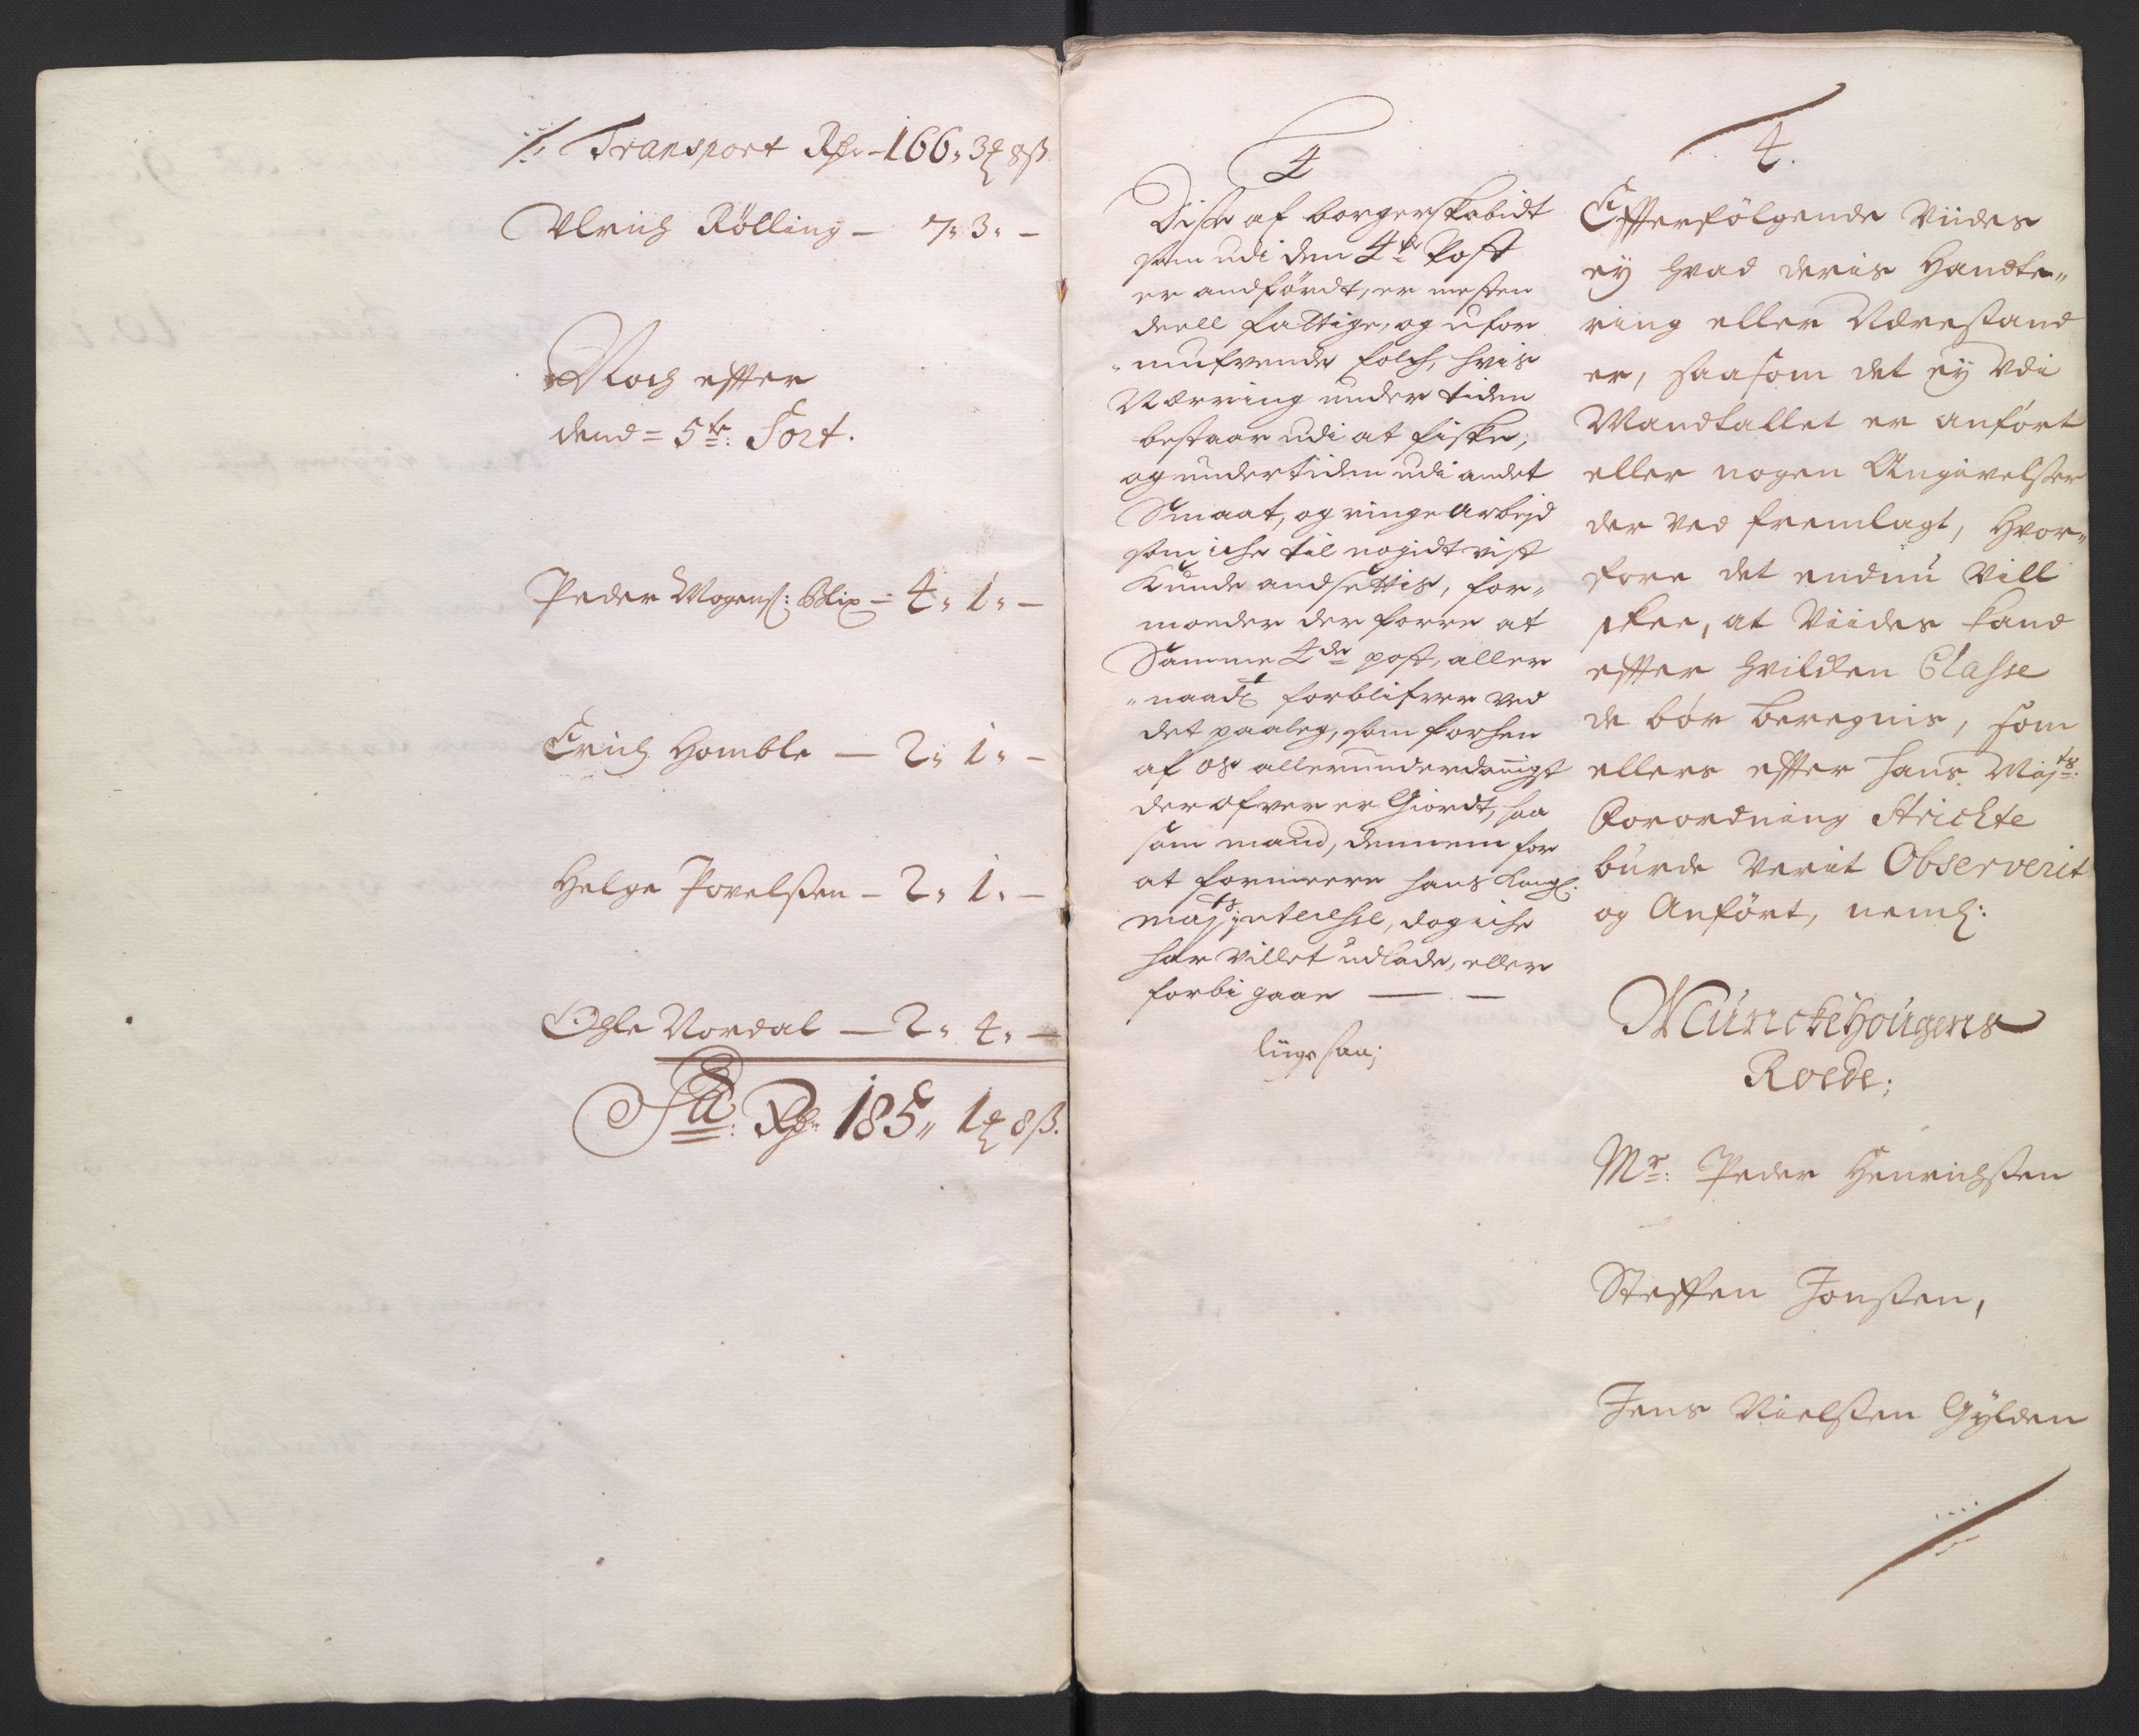 Transport Rdr – 166„ 3 ₰ 8 ß
Ulrich Rölling – 7„ 3„ –
Noch effter
dend = 5te: Sort.
Peder Mogens: Blix – 4„ 1„ –
Erich Homble — 2„ 1„ –
Helge Povelssen – 2„ 1„ –
Ohle Nordal — 2„ 4„ –
Sa: Rdr 185„ 1 ₰ 8 ß.
4
Disse af borgerskabidt
som udi den 4de Post
er andfördt, er mesten
deell fattige, og ufor
„mufvende folch, hvis
Nærring under tiden
bestaar udi at fiske,
og undertiden udi andet
Smaat, og ringe arbejd
som iche til nogidt vist
Kunde andsettis, for„
moeder der forre at
Samme 4de post, aller
„naadt forblifver ved
det paaleg, som forhen
af os allerunderdanigst
der ofver er Giordt, saa
som mand, dennem for
at formeere hans Kongl:
majts jnteresse, dog iche
har villet udlade, eller
forbi gaae — –
liigesaa;
4.
Effterfölgende Viides
eÿ hvad deris Handte„
ring eller Nærestand
er, saasom det eÿ Udi
Mandtallet er anfört
eller nogen Angivelsser
der ved fremlagt, Hvor„
fore det endnu Vill
skee, at Viides kand
effter hvilcken Classe
de bör beregnis, som
ellers effter Hans Maÿts:
Forordning Strichte
burde Verit Observerit
og Anfört, neml:
Münckehougens
Roede;
Mr: Peder Henrichssen
Steffen Jonssen,
Jens Nielssen Gÿlden